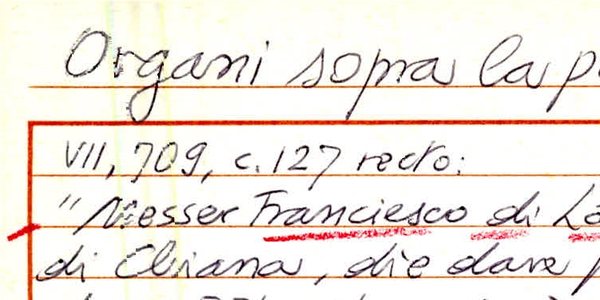 Organi sopra la p
VII, 709, c. 127 recto:
"Messer Franciesco di Lo
di Chiana, die dare p